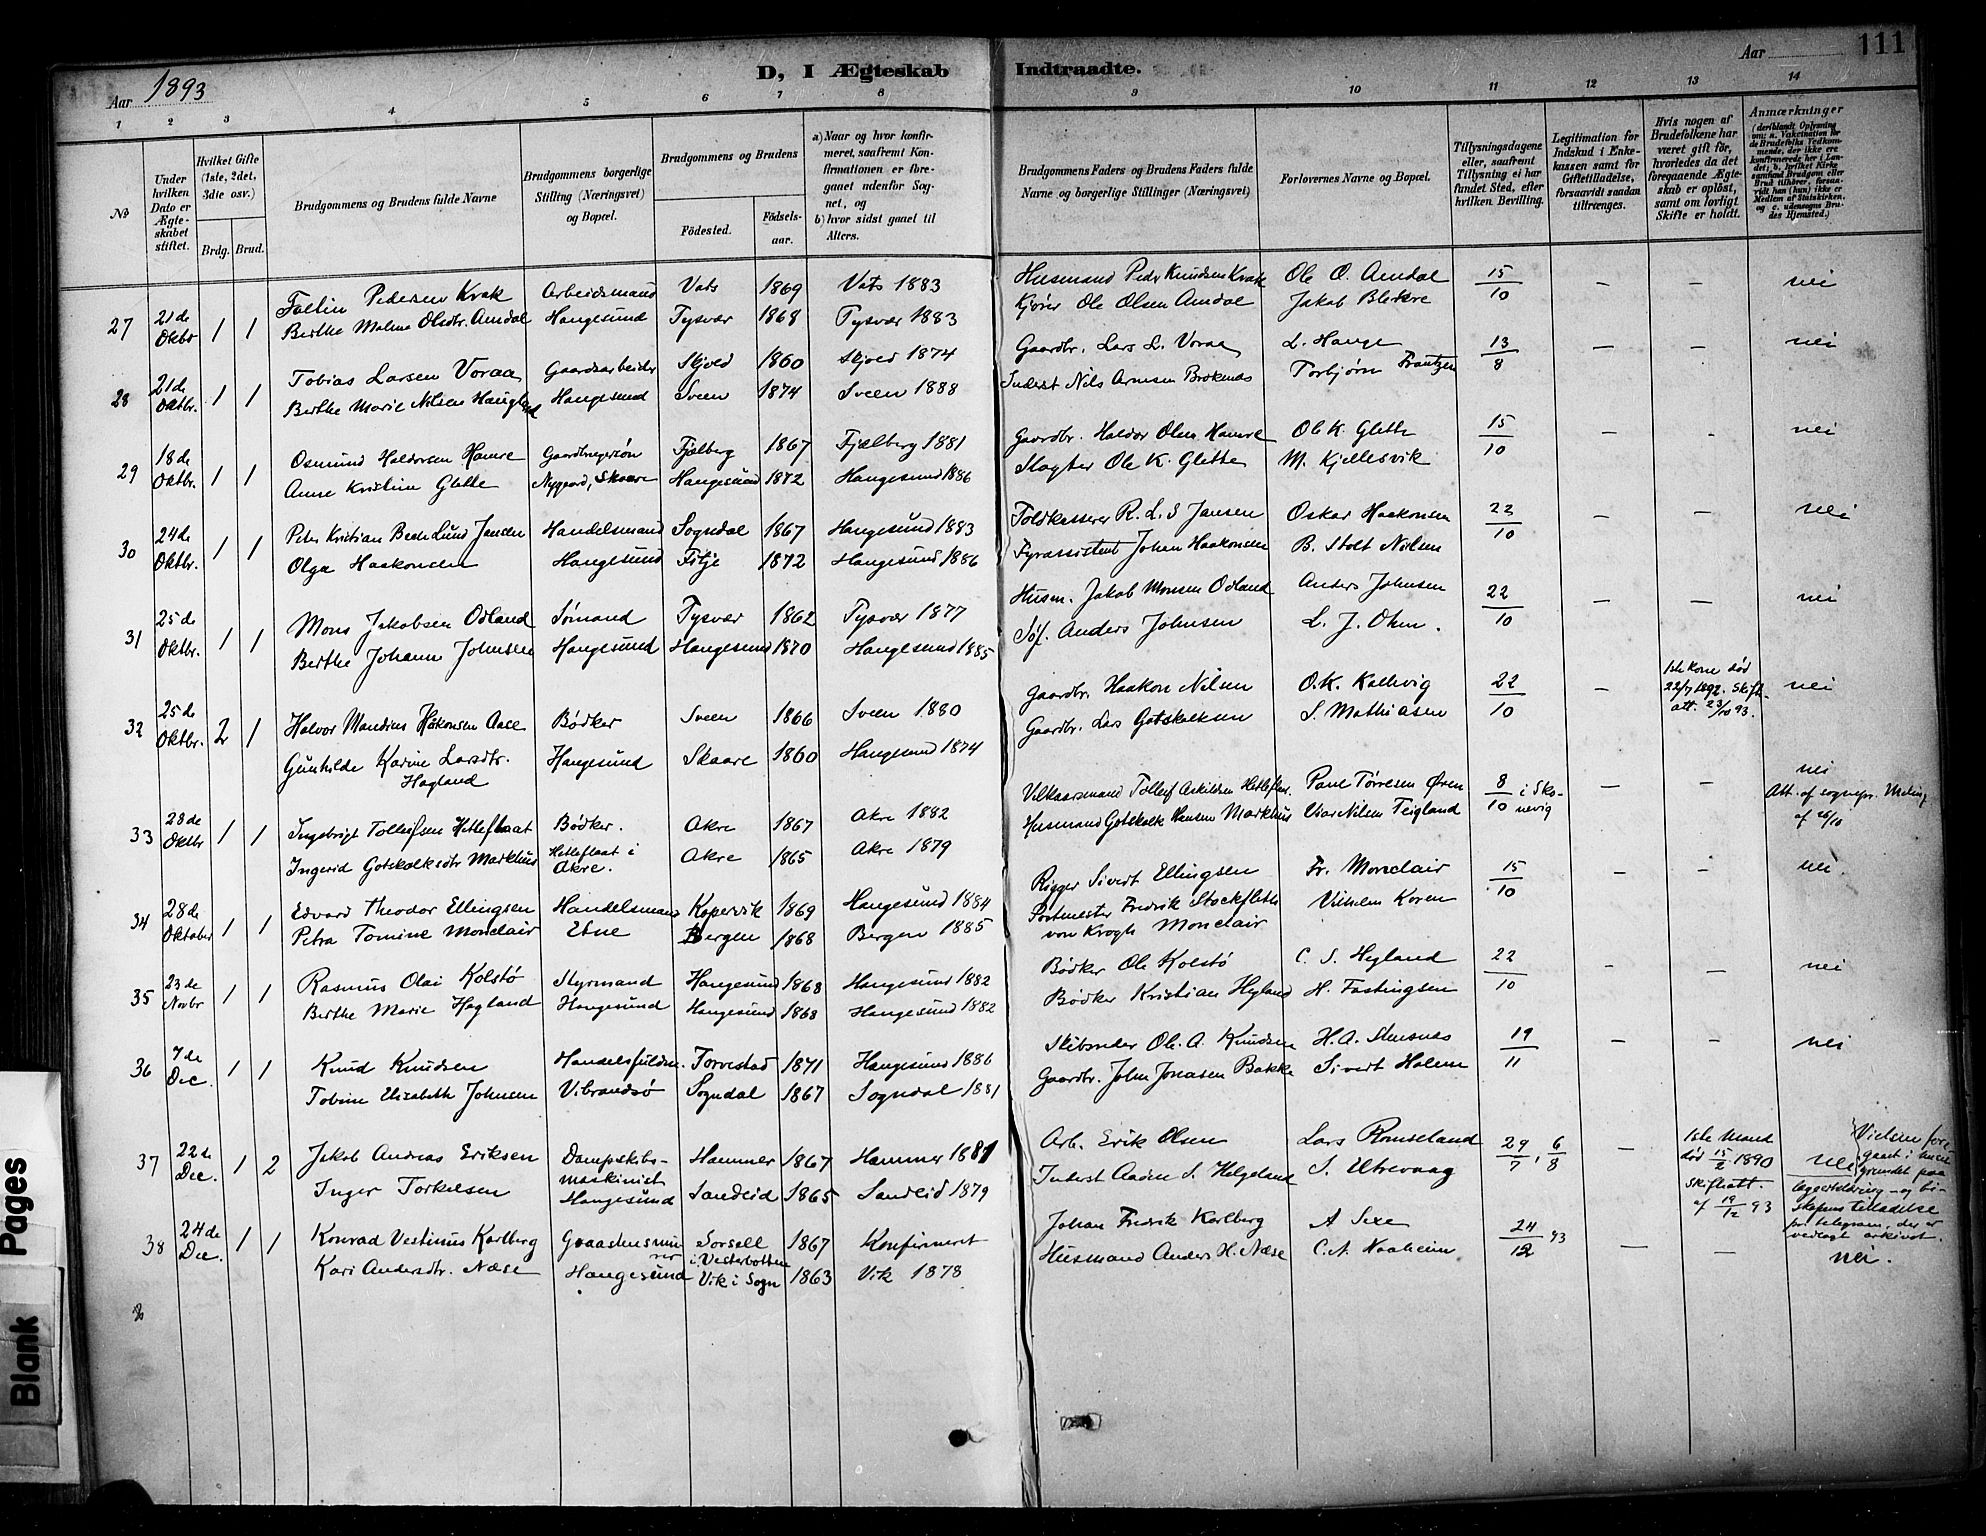 Aar 1893
D, I Ægteskab Indtraadte.
Aar 111
1 2 3 4 5 6 7 8 9 10 11 12 13 14
No
Under hvilken Dato er Ægteskabet stiftet.
Hvilket Gifte (1ste, 2det, 3die osv.)
Brdg. Brud.
Brudgommens og Brudens fulde Navne
Brudgommens borgerlige Stilling (Næringsvei) og Bopæl.
Brudgommens og Brudens
Fødested. Fødselsaar.
a) Naar og hvor konfirmeret, saafremt Konfirmationen er foregaaet udenfor Sognet, og
b) hvor sidst gaaet til Alters.
Brudgommens Faders og Brudens Faders fulde Navne og borgerlige Stillinger (Næringsvei)
Forlovernes Navne og Bopæl.
Tillysningsdagene eller, saafremt Tillysning ei har fundet Sted, efter hvilken Bevilling.
Legitimation for Indskud i Enkekassen samt for Giftetilladelse, forsaavidt saadan tiltrænges.
Hvis nogen af Brudefolkene har været gift før, hvorledes da det foregaaende Ægteskab er opløst, samt om lovligt Skifte er holdt.
Anmærkninger
(deriblandt Oplysning om: a. Vaksination for de Brudefolks Vedkommende, der ikke ere konfirmerede her i Landet; b. hvilket Kirkesamfund Brudgom eller Brud tilhører, forsaavidt han (hun) ikke er Medlem af Statskirken, og c. udensogns Brudes Hjemsted.)
27 21de Oktbr 1 1 Pedersen Kvak Arbeidsmand Vats 1869 Vats 1883 Husmand Peder Knudsen Kvak Ole O. Amdal 15/10 – – nei
Berthe Malena Olsdtr. Amdal Haugesund Tysvær 1868 Tysvær 1883 Kjører Ole Olsen Amdal Jakob Blikre
28 21de Oktbr. 1 1 Tobias Larsen Voraa Gaardsarbeider Skjold 1860 Skjold 1874 Gaardbr. Lars L. Voraa L. Hauge 13/8 – – nei
Berthe Marie Nilsen Haugland Haugesund Sveen 1874 Sveen 1888 Inderst Nils Arnesen Torbjørn Frantzen
29 18de Oktbr. 1 1 Osmund Haldorsen Hamre Gaardbrugersøn Fjelberg 1867 Fjælberg 1881 Gaardbr. Haldor Olsen Hamre Ole K. Glette 15/10 – - nei
Anne Kristine Glette Nygaard, Skaare Haugesund 1872 Haugesund 1886 Slagter Ole K. Glette M. Kjellesvik
30 24de Oktbr. 1 1 Peter Kristian Lund Jansen Handelsmand Sogndal 1867 Haugesund 1883 Toldkasserer R. L. S Jansen Oskar Haakonsen 22/10 – – nei
Olga Haakonsen Haugesund Fitje 1872 Haugesund 1886 Fyrassistent Johan Haakonsen B. Stolt Nilsen
31 25de Oktbr. 1 1 Mons Jakobsen Odland Sømand Tysvær 1862 Tysvær 1877 Husm. Jakob Monsen Odland Anders Johnsen 22/10 – – nei
Berthe Johanne Johnsen Haugesund Haugesund 1870 Haugesund 1885 Søf. Anders Johnsen L. J. Ohm.
32 25de Oktbr. 2 1 Halvor Mandius Håkonsen Aase Bødker Sveen 1866 Sveen 1880 Gaardbr. Haakon Nilsen O. K. Kallevig 22/10 – 1ste Kone død 22/7 1892. Skift. att. 23/10 93. nei
Gunhilde Karine Larsdtr. Hagland Haugesund Skaare 1860 Haugesund 1874 Gaardbr. Lars Gotskalksen S. Mathiasen
33 28de Oktbr 1 1 Ingebrigt Tolleifsen Hetleflaat Bødker. Akre 1867 Akre 1882 Vilkaarsmand Tolleif Askildsen Hetleflaat Paul Tørresen Øren 8/10 i Skonevig – – nei
Att. af sognepr. Meling af 26/10
Ingerid Gotskalksdtr Markhus Hetleflaat i Akre. Akre 1865 Akre 1879 Husmand Gotskalk Hansen Markhus Nilsen Teigland
34 28de Oktober 1 1 Edvard Theodor Ellingsen Handelsmand Kopervik 1869 Haugesund 1884 Rigger Sivert Ellingsen Fr. Monclair 15/10 – - nei.
Petra Tomine Monclair Etne Bergen 1868 Bergen 1885 Postmester Fredrik Stockfleth von Krogh Monclair Vilhelm Koren
35 23de Novbr 1 1 Rasmus Olai Kolstø Styrmand Haugesund 1868 Haugesund 1882 Bødker Ole Kolstø C. S. Hegland 22/10 – – nei
Berthe Marie Hagland Haugesund Haugesund 1868 Haugesund 1882 Bødker Kristian Hegland H. Fastingsen
36 7de Dec. 1 1 Knud Knudsen Handelsfuldm. Torvestad 1871 Haugesund 1886 Skibsreder Ole A. Knudsen H. A. Stensnes 19/11 – – nei
Tobine Elizabeth Johnsen Vibrandsø Sogndal 1867 Sogndal 1881 Gaardbr. John Jonasen Bakke Sivert Holem
37 22de Dec. 1 2 Jakob Andreas Eriksen Dampskibsmaskinist Hammer 1867 Hammer 1881 Arb. Erik Olsen Lars Romseland 29/7, 6/8 – 1ste Mand død 15/2 1890 Skifteatt. af 19/12 93 nei
Vielsen foregaaet i huset grundet paa lægeerklæring og biskopens tilladelse pr telegram, der er vedlagt arkivet.
Inger Torkelsen Haugesund Sandeid 1865 Sandeid 1879 Inderst Aadne S. Helgeland S. Utvevaag
38 24de Dec. 1 1 Konrad Vestinus Karlberg Graastensminerer Sorsell i Vesterbotten 1867 Konfirmeret Johan Fredrik Karlberg A Sexe 24/12 93 – – nei.
Kari Andersdtr. Næse Haugesund Vik i Sogn 1863 Vik 1878 Husmand Anders H. Næse C. A. Naaheim
Blank Pages